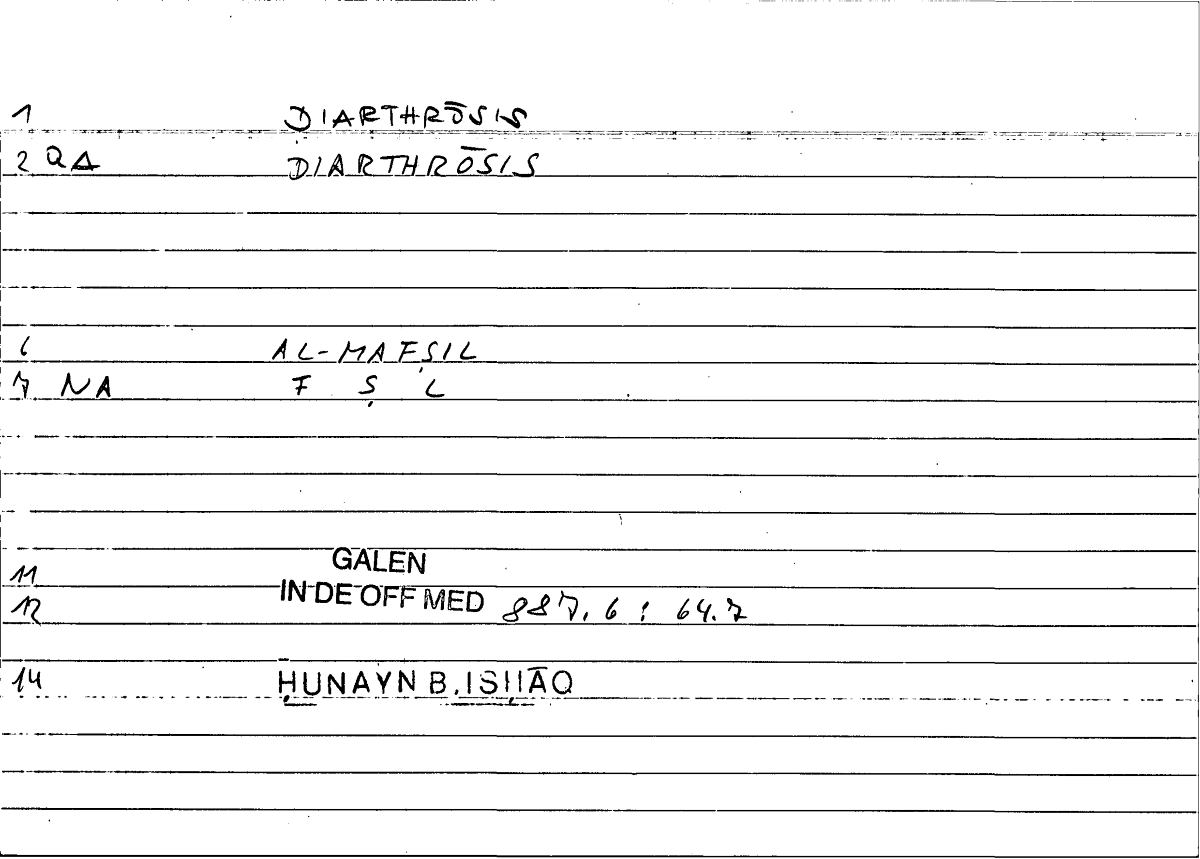 1 DIARTHRŌSIS
2 QA DIARTHRŌSIS
6 AL-MAFṢIL
7 NA F Ṣ L
GALEN
11
IN DE OFF MED 887.6 : 64.7
12
14 ḤUNAYN B. ISḤĀQ